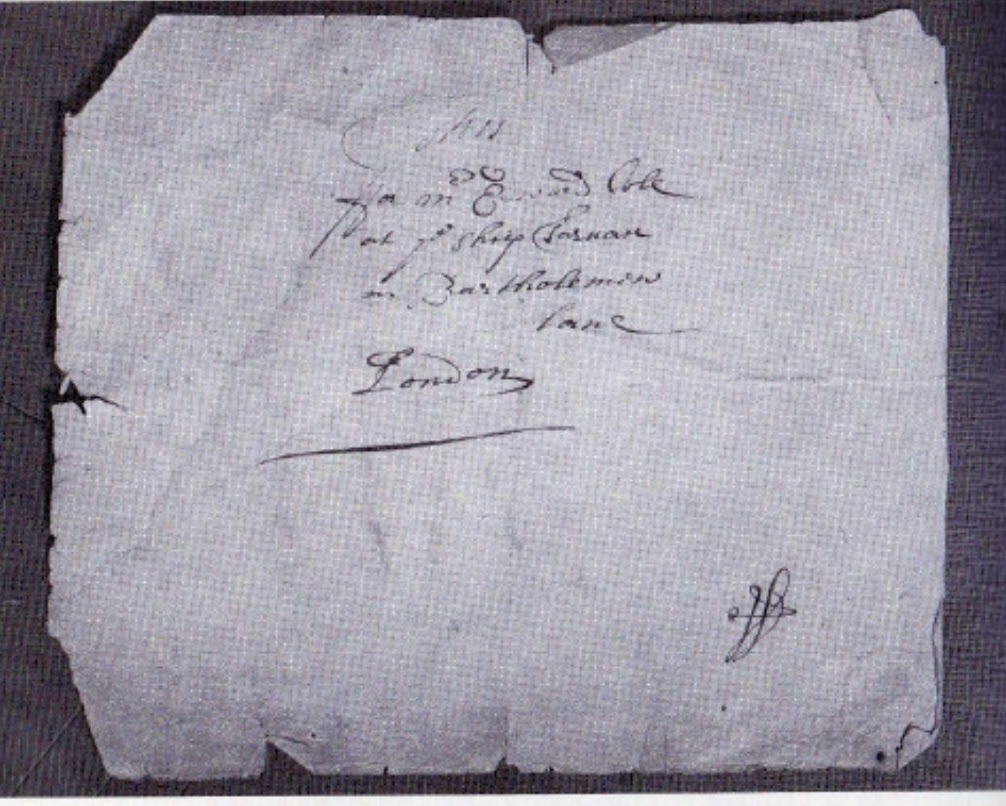 This
For mr Edward Cole
at ye ship Tavuan
in Bartholemew
lane
London